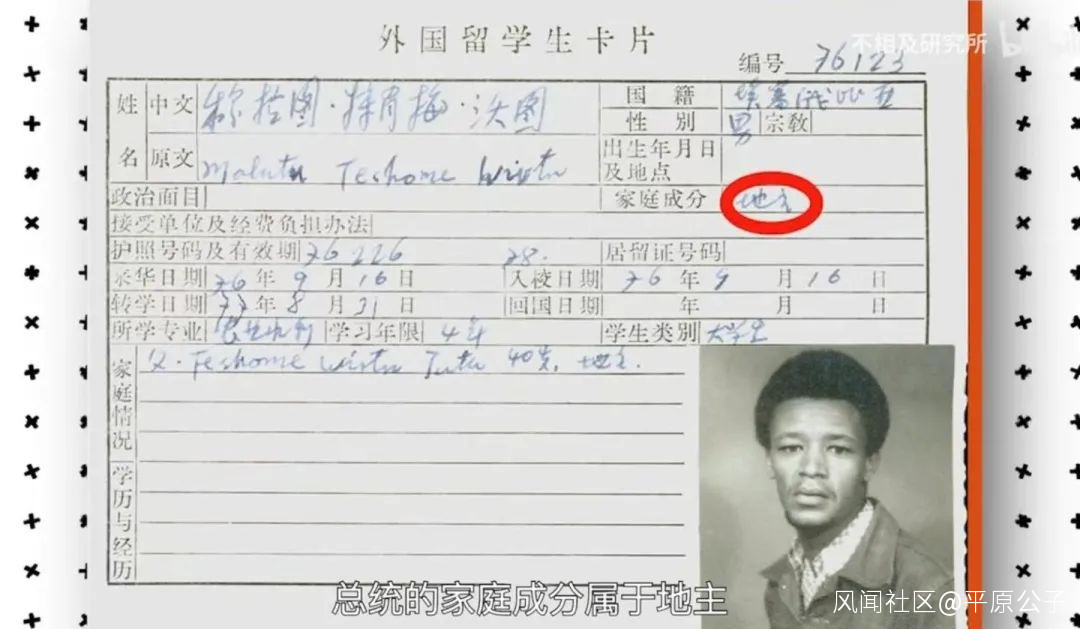 外国留学生卡片
不相及研究所
编号 76123
姓名 中文 穆拉图·特肖梅·沃图 国籍 埃塞俄比亚
性别 男 宗教
原文 Mulatu Teshome Wirtu 出生年月日及地点
政治面目 家庭成分 地主
接受单位及经费负担办法
护照号码及有效期 76226 78. 居留证号码
来华日期 76年9月16日 入校日期 76年9月16日
转学日期 77年8月31日 回国日期 年 月 日
所学专业 学习年限 4年 学生类别 大学生
家庭情况 父. Teshome Wirtu 40岁, 地主.
学历与经历
总统的家庭成分属于地主
风闻社区@平原公子